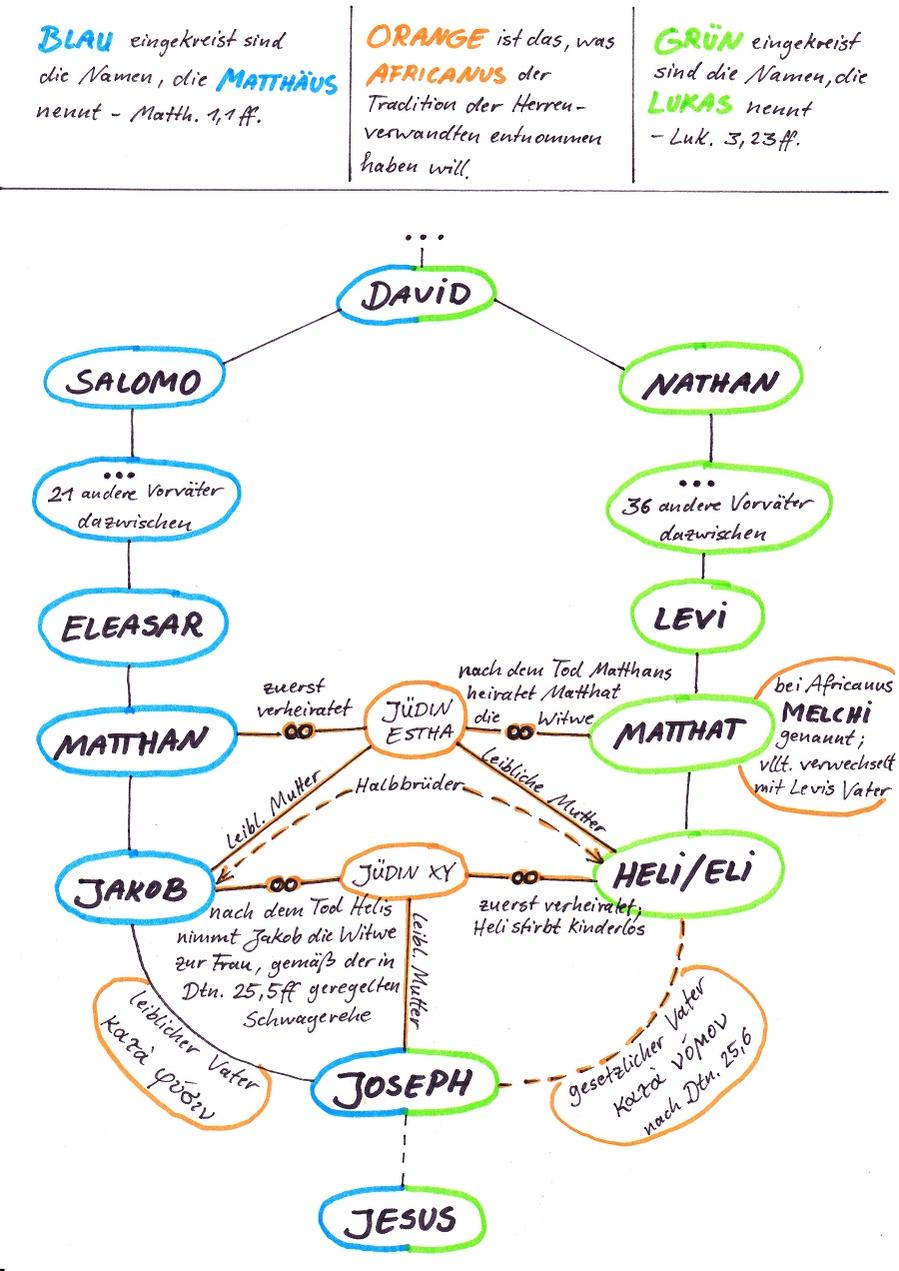 BLAU eingekreist sind
die Namen, die MATTHÄUS
nennt - Matth. 1,1 ff.
ORANGE ist das, was
AFRICANUS der
Tradition der Herren-
verwandten entnommen
haben will.
GRÜN eingekreist
sind die Namen, die
LUKAS nennt
- Luk. 3,23 ff.
...
DAViD
SALOMO
NATHAN
...
21 andere Vorväter
dazwischen
...
36 andere Vorväter
dazwischen
ELEASAR
LEVi
zuerst
verheiratet
JÜDiN
ESTHA
nach dem Tod Matthans
heiratet Matthat
die Witwe
MATTHAN
MATTHAT
bei Africanus
MELCHi
genannt;
vllt. verwechselt
mit Levis Vater
Leibl. Mutter
Halbbrüder
Leibliche Mutter
JAKOB
JÜDiN XY
HELi/ELi
nach dem Tod Helis
nimmt Jakob die Witwe
zur Frau, gemäß der in
Dtn. 25,5ff geregelten
Schwagerehe
Leibl. Mutter
zuerst verheiratet;
Heli stirbt kinderlos
leiblicher Vater
κατὰ φύσιν
gesetzlicher Vater
κατὰ νόμον
nach Dtn. 25,6
JOSEPH
JESUS